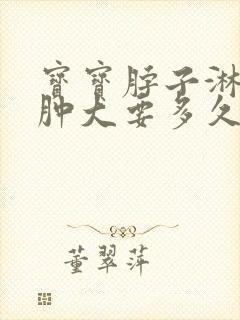 寶寶脖子淋
肿大要多久
董翠萍